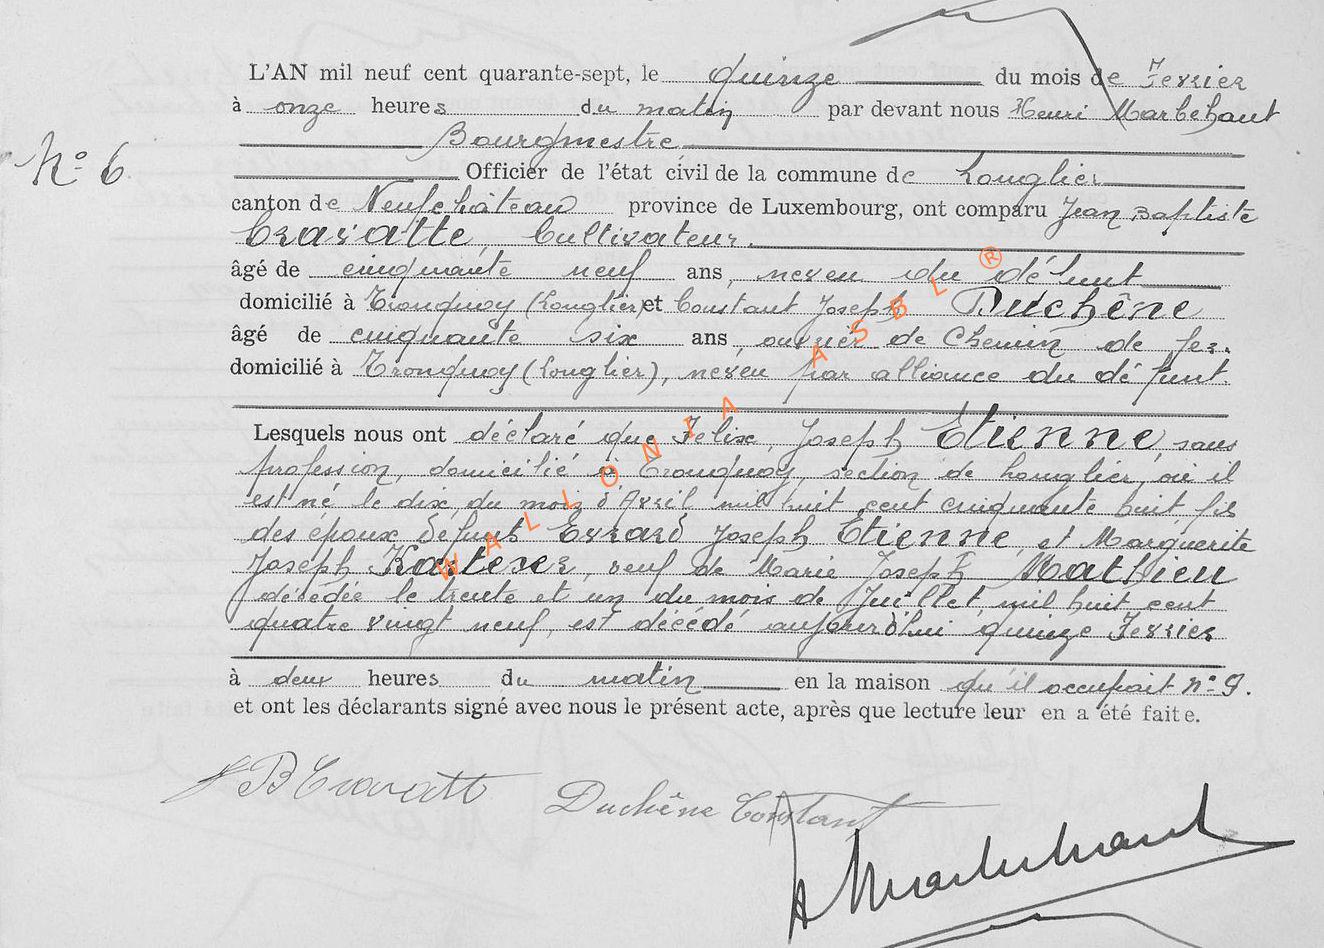 L'AN mil neuf cent quarante-sept, le quinze du mois de Fevrier
à onze heures du matin par devant nous Henri Marbehant
Bourgmestre
N° 6
Officier de l'état civil de la commune de Longlier
canton de Neufchâteau province de Luxembourg, ont comparu Jean Baptiste
Cravatte, Cultivateur.
âgé de cinquante neuf ans, neveu du défunt
domicilié à Tronquoy (Longlier) et Constant Joseph Duchêne
âgé de cinquante six ans, ouvrier de Chemin de fer.
domicilié à Tronquoy (Longlier), neveu par alliance du défunt.
Lesquels nous ont déclaré que Felix, Joseph Etienne, sans
profession, domicilié à Tronquoy, section de Longlier, où il
est né le dix, du mois d'Avril mil huit cent cinquante huit, fils
des époux défunts Evrard Joseph Etienne, et Marguerite
Joseph , veuf de Marie Joseph Mathieu
décédée le trente et un du mois de Juillet, mil huit cent
quatre vingt neuf, est décédé aujourd'hui quinze Fevrier
à deux heures du matin en la maison qu'il occupait n° 9.
et ont les déclarants signé avec nous le présent acte, après que lecture leur en a été faite.
JB Cravatt
Duchêne Constant
H Marbehant
WALLONIA ASBL ®